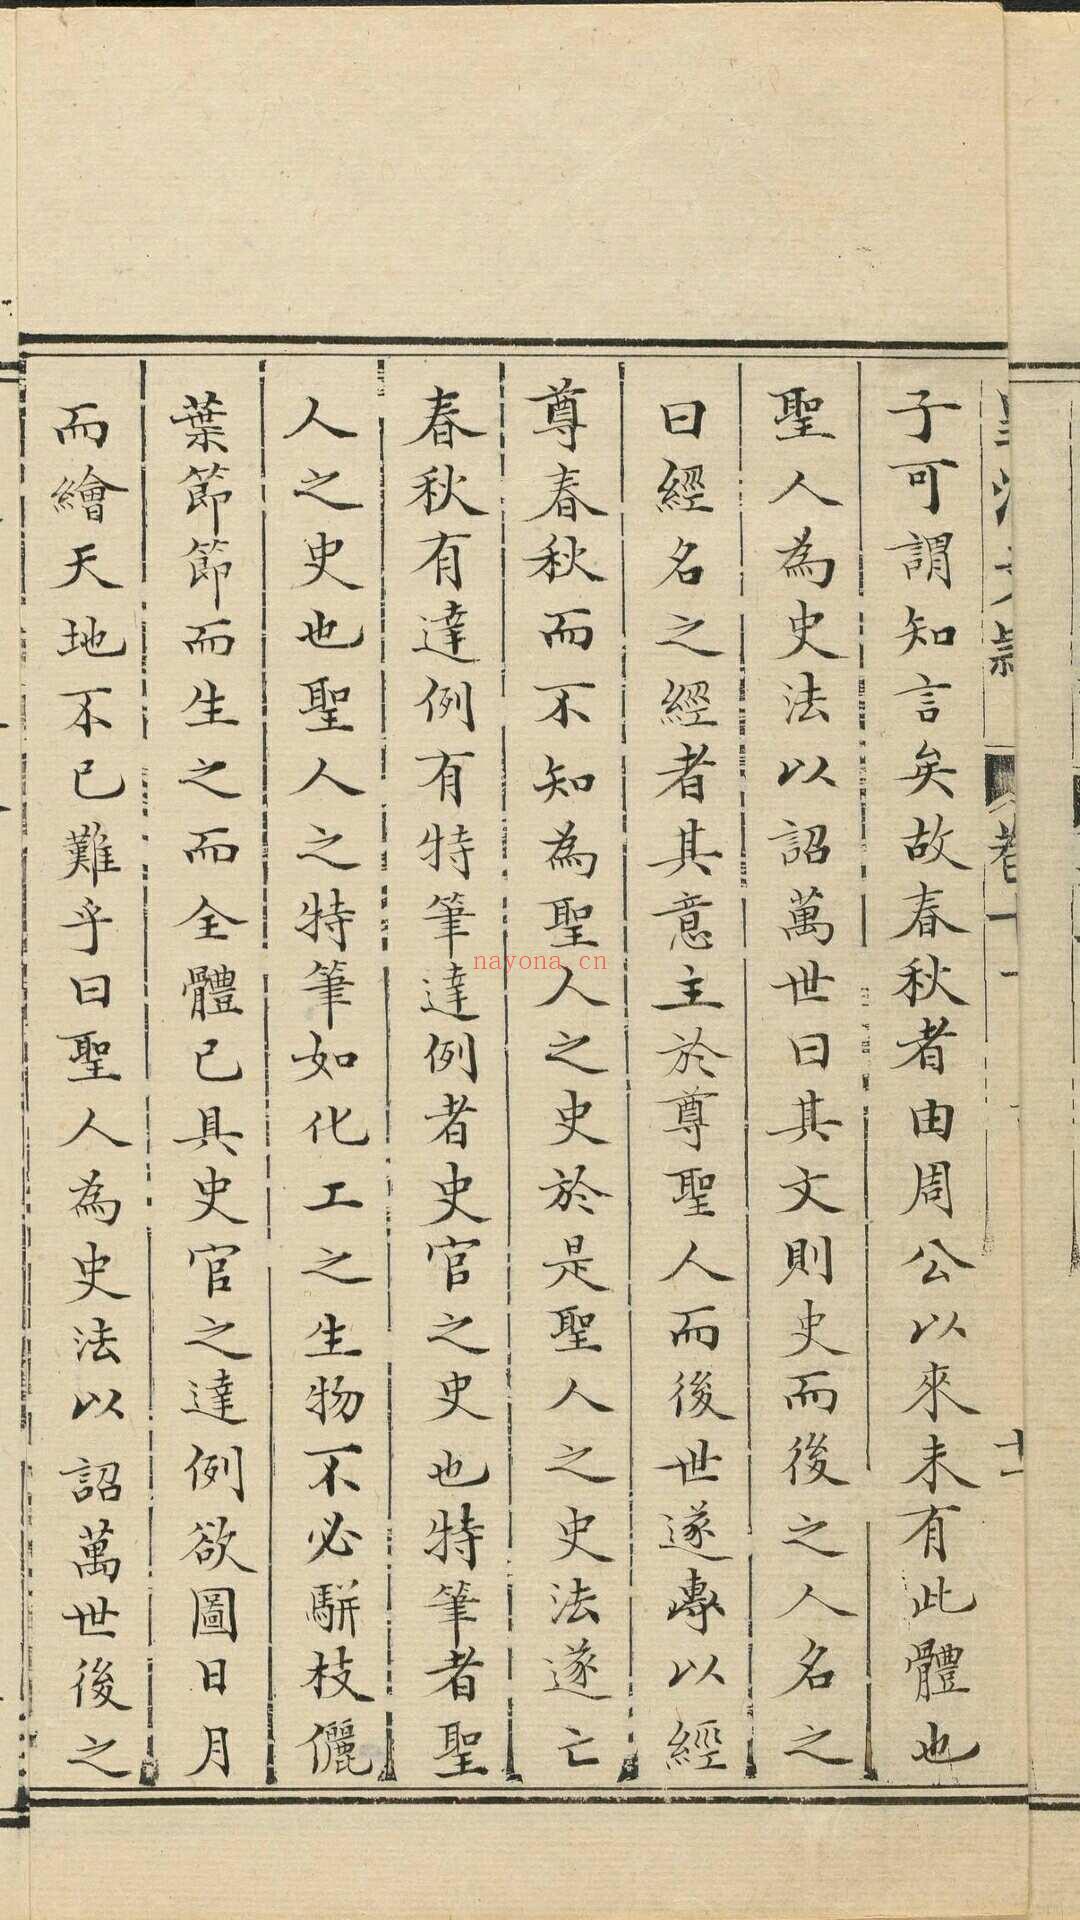 子可謂知言矣故春秋者由周公以來未有此體也
聖人為史法以詔萬世曰其文則史而後之人名之
曰經名之經者其意主於尊聖人而後世遂專以經
尊春秋而不知為聖人之史於是聖人之史法遂亡
春秋有達例有特筆達例者史官之史也特筆者聖
人之史也聖人之特筆如化工之生物不必駢枝儷
葉節節而生之而全體已具史官之達例欲圖日月
而繪天地不已難乎曰聖人為史法以詔萬世後之
nayona.cn